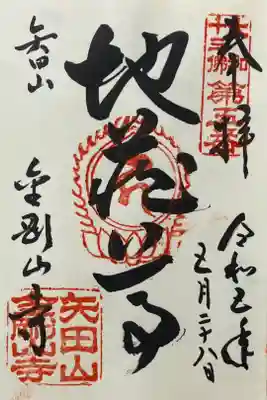 十三佛第五番
奉拝
令和五年
五月二十八日
地蔵尊
矢田山
金剛山寺
矢田山
金剛山寺